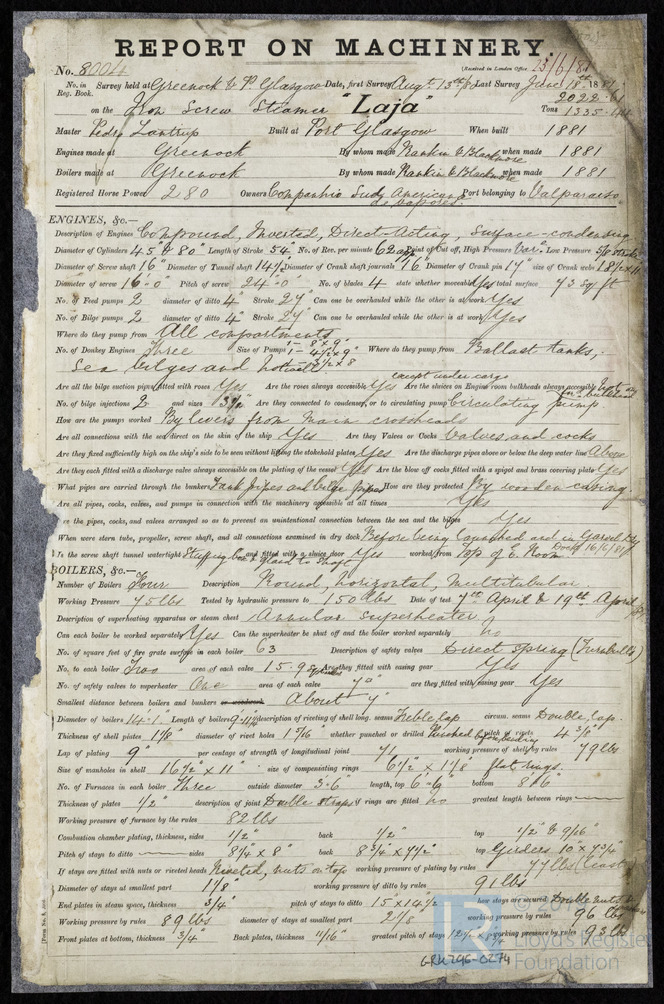 REPORT ON MACHINERY.
No. 8004 (Received in London Office 13/6/81
No. in Reg. Book. Survey held at Greenock & P. Glasgow Date, first Survey Augt 13th/80 Last Survey June 18th 1881
on the Iron Screw Steamer "Laja" Tons 2022.61
1335.
Master Pedro Lantrup Built at Port Glasgow When built 1881
Engines made at Greenock By whom made Rankin & Blackmore when made 1881
Boilers made at Greenock By whom made Rankin & Blackmore when made 1881
Registered Horse Power 280 Owners Companhia Sud Americana de vapores Port belonging to Valparaiso
ENGINES, &c.—
Description of Engines Compound, Inverted, Direct-Acting, Surface-condensing
Diameter of Cylinders 45" & 80" Length of Stroke 54" No. of Rev. per minute 62 Point of Cut off, High Pressure Var. Low Pressure
Diameter of Screw shaft 16" Diameter of Tunnel shaft 14½ Diameter of Crank shaft journals 16" Diameter of Crank pin 17" size of Crank webs 18½ x 11
Diameter of screw 16-0" Pitch of screw 24-0" No. of blades 4 state whether moveable Yes total surface 73 sq ft
No. of Feed pumps 2 diameter of ditto 4" Stroke 27 Can one be overhauled while the other is at work Yes
No. of Bilge pumps 2 diameter of ditto 4" Stroke 27" Can one be overhauled while the other is at work Yes
Where do they pump from All compartments
No. of Donkey Engines Three Size of Pumps 1- 8" x 9" 1- 4½ x 9" 3½ x 8 Where do they pump from Ballast tanks,
Sea, bilges and hotwell
Are all the bilge suction pipes fitted with roses Yes Are the roses always accessible Yes except under cargo Are the sluices on Engine room bulkheads always accessible
No. of bilge injections 2 and sizes 3½" Are they connected to condenser, or to circulating pump Circulating pump
How are the pumps worked By levers from main crossheads
Are all connections with the sea direct on the skin of the ship Yes Are they Valves or Cocks Valves and cocks
Are they fixed sufficiently high on the ship's side to be seen without lifting the stokehold plates Yes Are the discharge pipes above or below the deep water line Above
Are they each fitted with a discharge valve always accessible on the plating of the vessel Yes Are the blow off cocks fitted with a spigot and brass covering plate Yes
What pipes are carried through the bunkers Tank pipes and bilge pipes How are they protected By wooden casing
Are all pipes, cocks, valves, and pumps in connection with the machinery accessible at all times Yes
re the pipes, cocks, and valves arranged so as to prevent an unintentional connection between the sea and the bilges Yes
When were stern tube, propeller, screw shaft, and all connections examined in dry dock Before being launched and in Garvel Dry Dock 16/6/81
Is the screw shaft tunnel watertight Stuffing box & gland to shaft and fitted with a sluice door Yes worked from Top of E. Room
BOILERS, &c.—
Number of Boilers Four Description Round, Horizontal, Multitubular
Working Pressure 75 lbs Tested by hydraulic pressure to 150 lbs Date of test 7th April & 19th April
Description of superheating apparatus or steam chest Annular superheater
Can each boiler be worked separately Yes Can the superheater be shut off and the boiler worked separately No
No. of square feet of fire grate surface in each boiler 63 Description of safety valves Direct spring (Turnbull's)
No. to each boiler Two area of each valve 15.9 sq inches Are they fitted with easing gear Yes
No. of safety valves to superheater One area of each valve are they fitted with easing gear Yes
Smallest distance between boilers and bunkers or woodwork About 7"
Diameter of boilers 14-1" Length of boilers 9-4½ description of riveting of shell long. seams Treble, lap circum. seams Double, lap.
Thickness of shell plates 1⅛" diameter of rivet holes 1 5/16" whether punched or drilled Punched before bending pitch of rivets 4 3/4"
Lap of plating 9" per centage of strength of longitudinal joint 71 working pressure of shell by rules 79 lbs
Size of manholes in shell 16½" x 11" size of compensating rings 6½" x 1⅛" flat rings.
No. of Furnaces in each boiler Three outside diameter 3-6" length, top 6-6" bottom 8-6"
Thickness of plates ½" description of joint Double straps if rings are fitted No greatest length between rings
Working pressure of furnace by the rules 82 lbs
Combustion chamber plating, thickness, sides ½" back ½" top ½" & 9/16"
Pitch of stays to ditto sides 8¼ x 8" back 8¾ x 7½" top Girders 10" x 7¾"
If stays are fitted with nuts or riveted heads Riveted, nuts on top working pressure of plating by rules 77 lbs (least)
Diameter of stays at smallest part 1⅛" working pressure of ditto by rules 91 lbs
End plates in steam space, thickness ¾" pitch of stays to ditto 15 x 14½ how stays are secured Double nuts &
Working pressure by rules 89 lbs diameter of stays at smallest part 2⅛ working pressure by rules 96 lbs
Front plates at bottom, thickness ¾" Back plates, thickness 11/16" greatest pitch of stays working pressure by rules 93 lbs
GRK296-0274
LR
© 20
Lloyd's Register
Foundation